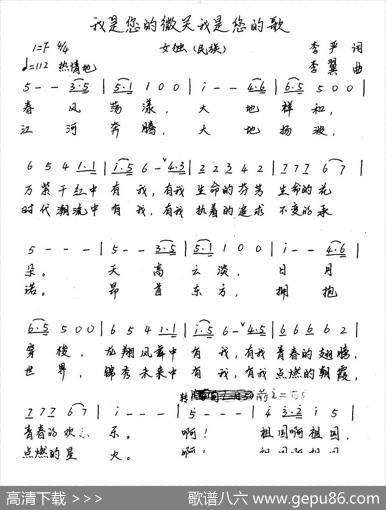 我是您的微笑我是您的歌
1=F 4/4 女独(民族) 李严 词
♩=112 热情地 李翼 曲
5 - - 3·5 | 5·1 1 0 0 | i - - 4·6 | 6·5 5 0 0 |
春 风 荡漾， 大 地 祥和，
江 河 奔腾， 大 地 扬波，
6 5 4 1·1 | 1·5 6 - 4·3 | 2 2 3 4 2 | 7 7 7 6 7 |
万紫千红中 有 我，有我 生命的芬芳 生命的花
时代潮流中 有 我，有我 执着的追求 不变的承
5 - - - | 5 - - 3·5 | 5·1 1 0 0 | i - - 4·6 |
朵。 天 高 云淡， 日 月
诺。 昂 首 东方， 拥 抱
6·5 5 0 0 | 6 5 4 1·1 | i·5 6 - 4·5 | 6 6 6 6 2 |
穿梭， 龙翔凤舞中 有 我，有我 青春的翅膀，
世界， 锦秀未来中 有 我，有我 点燃的朝霞，
转 前i=5
7 7 7 6 7 | i - - - | 5 - - - | 4 3·2 i 5 |
青春的欢 乐。 啊！ 祖国啊祖国，
点燃的星 火。 啊！ 祖国啊祖国，
高清下载 >>> 歌谱八六 www.gepu86.com